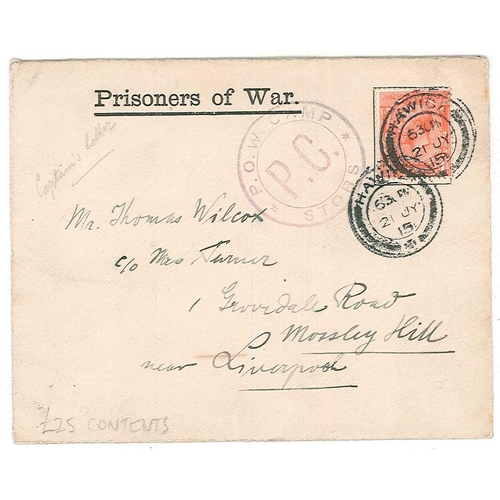 Prisoners of War.
P.O.W. CAMP
P.C.
* STOBS *
HAWICK
630PM
21 JY
15
HAWICK
630PM
21 JY
15
Captain's letter
Mr. Thomas Wilcox
c/o Mrs Turner
1 Grovedale Road
Mossley Hill
near Liverpool
£25 CONTENTS